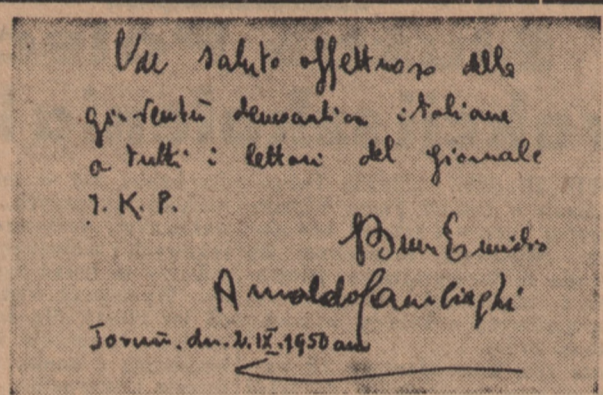 Un saluto affettuoso dalla
gioventù democratica italiana
a tutti i lettori del giornale
I. K. P.
Emidio
Arnaldo Gambiaghi
Toruń, dn. 2.IX.1950